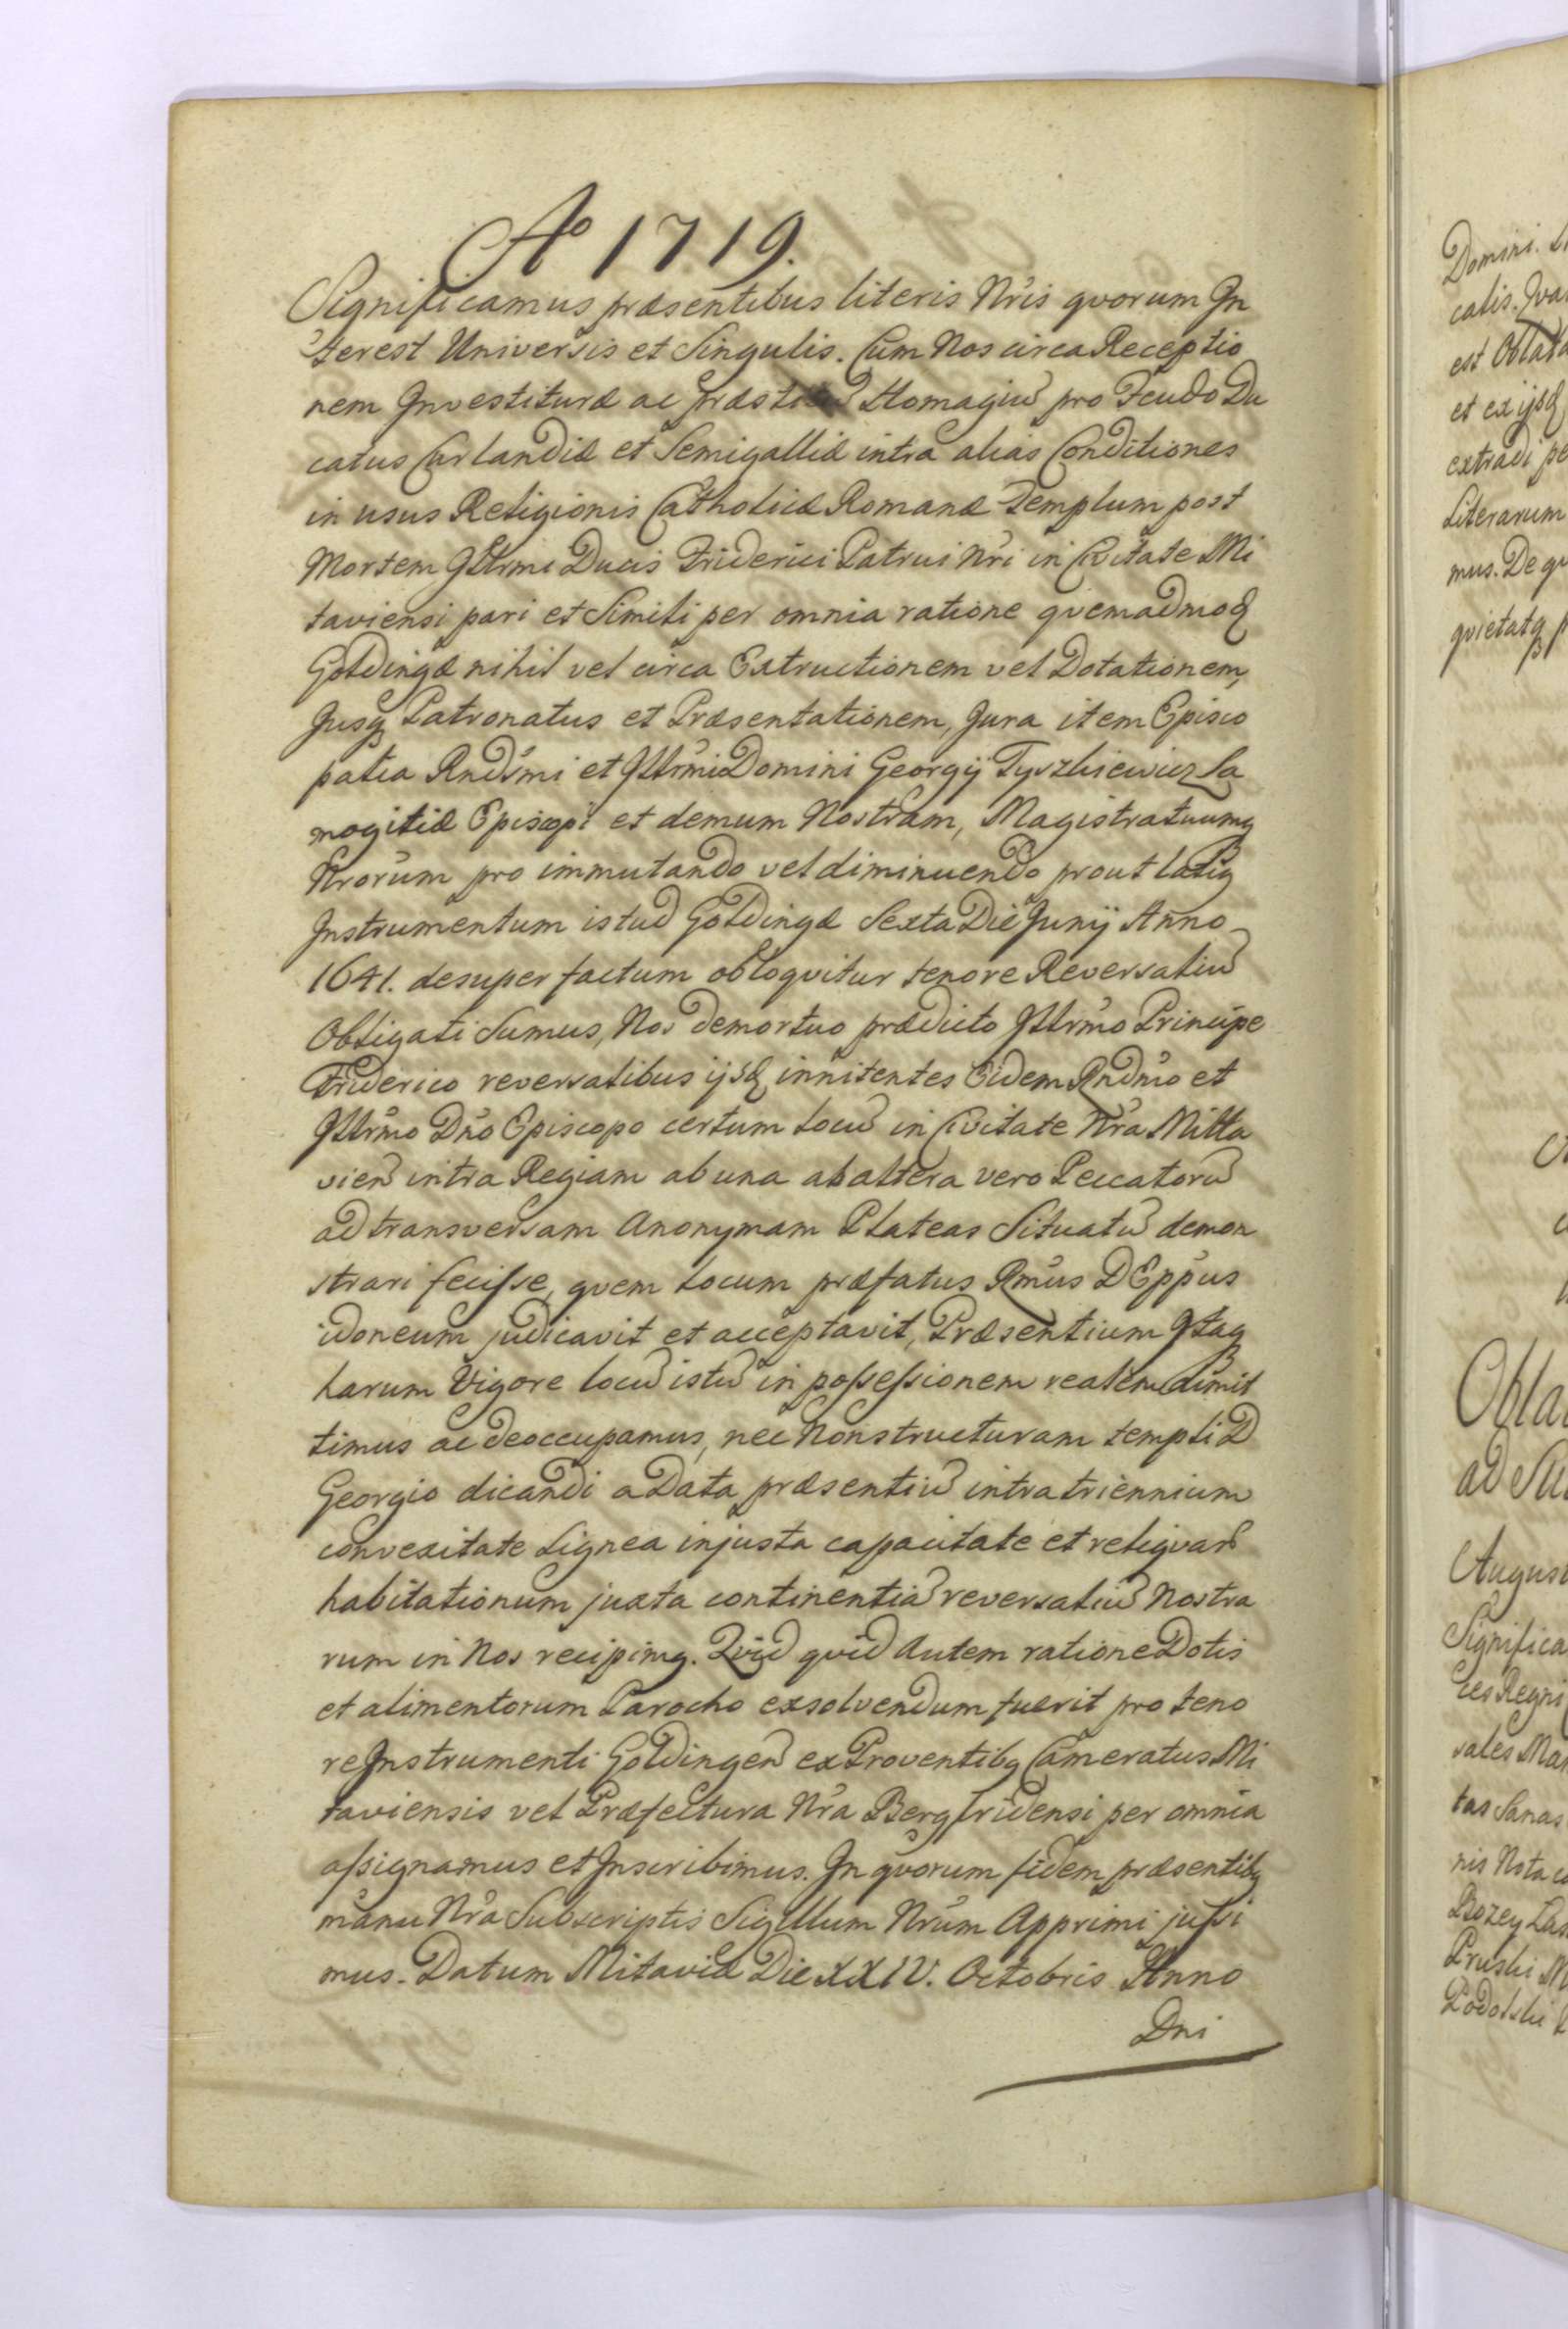 Ao 1719.
Significamus præsentibus literis Nr̃is qvorum In
terest Universis et Singulis. Cum Nos circa Receptio
nem Investituræ ac Homagiũ pro Feudo Du
catus Curlandiæ et Semigalliæ intra alias Conditiones
in usus Religionis Catholicæ Romanæ Templum post
Mortem Illrmi Ducis Friderici Patrui Nr̃i in Civitate Mi
taviensi pari et Simili per omnia ratione qvemadmoð
Goldingæ nihil vel circa Extructionem vel Dotationem,
Jusq Patronatus et Præsentationem, Jura item Episco
palia Rndsmi et Illrmi Domini Georgij Tyszkiewicz Sa
mogitiæ Episcopi et demum Nostram, Magistratuumq
Nrorum pro immutando vel diminuendo prout latiq
Instrumentum istud Goldingæ Sexta Die Junij Anno
1641. desuper factum obloqvitur tenore Reversaliũ
Obligati Sumus, Nos demortuo prædicto Illrmo Principe
Friderico reversalibus ijsð innitentes Eidem Rndmo et
Illrmo Dño Episcopo certum locũ in Civitate Nr̃a Mitta
vien intra Regiam ab una ab altera vero Peccatorũ
ad transversam Anonymam Plateas Situatũ demon
strari fecisse, qvem Locum præfatus Rmus D Eppus
idoneum judicavit et acceptavit, Præsentium Itaq
harum Vigore locũ istũ in possessionem realem dimit
timus ac deoccupamus, nec Non structuram templi D
Georgio dicandi a Data præsentiũ intra triennium
convexitate Lignea in justa capacitate et reliqvar
habitationum juxta continentiã reversaliũ Nostra
rum in Nos recipimq. Qvid qvid Autem ratione Dotis
et alimentorum Parocho exsolvendum fuerit pro teno
re Instrumenti Goldingen ex Proventibq Cameratus Mi
taviensis vel Præfectura Nr̃a Bergfridensi per omnia
assignamus et Inscribimus. In qvorum fidem præsentibq
manu Nr̃a Subscriptis Sigillum Nrum Apprimi jussi
mus. Datum Mitaviæ Die XXIV. Octobris Anno
Dni
Domini.
catis.
est Oblata
et ex ijsð
extradi
Literarum
mus. De
qvietatq
Obla
ad
August
Significa
ces Regni
sales
tas Sanas
nis Nota
Bozey
Pruski
Podolski